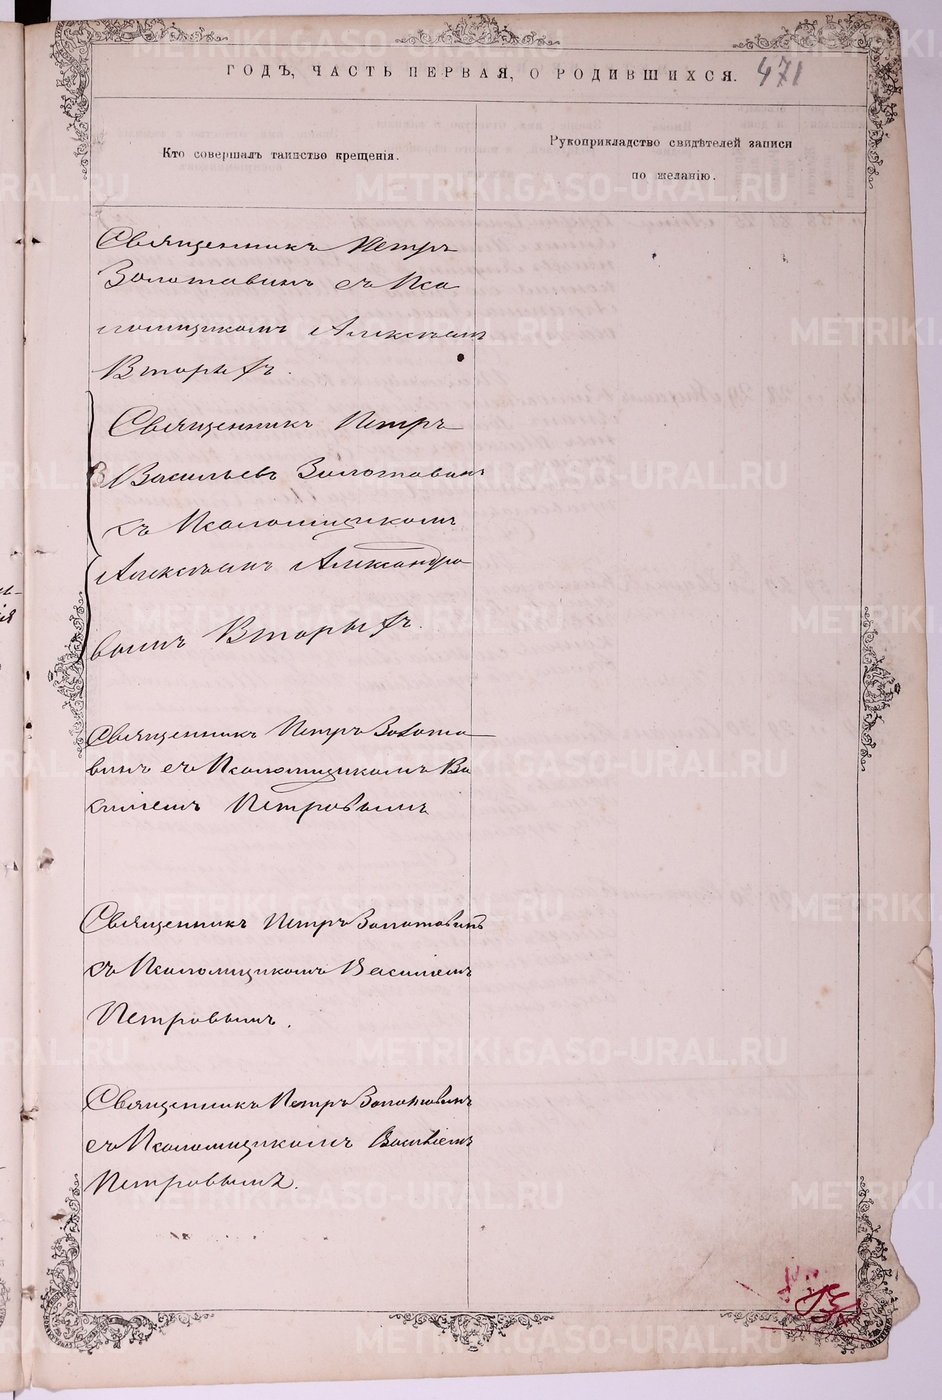 ГОДЪ, ЧАСТЬ ПЕРВАЯ, О РОДИВШИХСЯ. 471
Кто совершалъ таинство крещенія.
Рукоприкладство свидѣтелей записи
по желанію.
Священникъ Петръ
Золотавинъ съ Пса
ломщикомъ Алексѣемъ
Вторыхъ.
Священникъ Петръ
Васильевъ Золотавинъ
съ Псаломщикомъ
Алексѣемъ Александро
вымъ Вторыхъ.
Священникъ Петръ Золота
винъ съ Псаломщикомъ Ва
силіемъ Петровымъ
Священникъ Петръ Золотавинъ
съ Псаломщикомъ Василіемъ
Петровымъ.
Священникъ Петръ Золотавинъ
съ Псаломщикомъ Василіемъ
Петровымъ.
METRIKI.GASO-URAL.RU